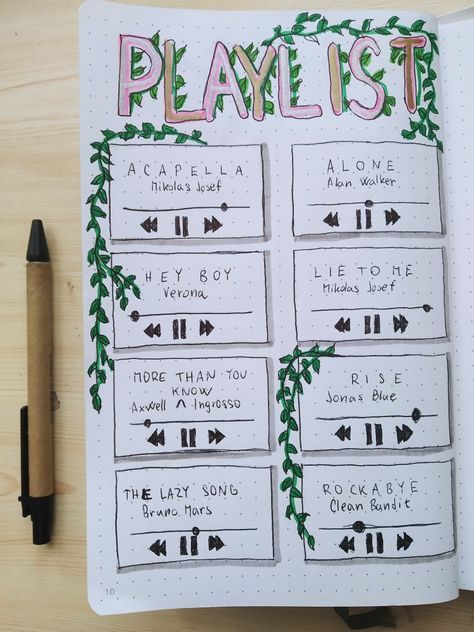 PLAYLIST
ACAPELLA
Mikolas Josef
ALONE
Alan Walker
HEY BOY
Verona
LIE TO ME
Mikolas Josef
MORE THAN YOU
KNOW
Axwell Λ Ingrosso
RISE
Jonas Blue
THE LAZY SONG
Bruno Mars
ROCKABYE
Clean Bandit
10